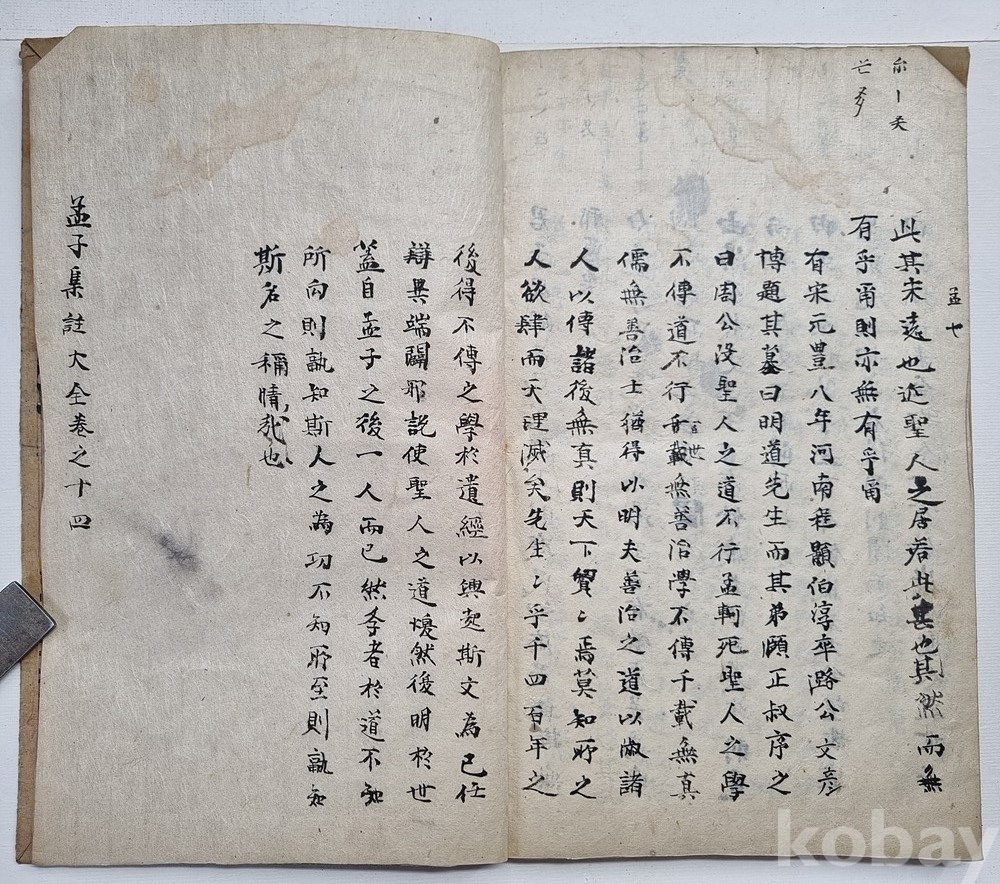 尔丨矣
孟 七
此其未遠也近聖人之居若此甚也其然而無
有乎甬則亦無有乎甬
有宋元豊八年河南程顥伯淳卒潞公文彦
博題其墓曰明道先生而其弟頤正叔序之
曰周公没聖人之道不行孟軻死聖人之學
不傳道不行百世無善治學不傳千載無真
儒無善治士猶得以明夫善治之道以淑諸
人以傳諸後無真則天下貿〻焉莫知所之
人欲肆而天理滅矣先生〻乎千四百年之
後得不傳之學於遺經以興起斯文為已任
辯異端闢邪說使聖人之道煥然後明於世
蓋自孟子之後一人而已然李者於道不知
所向則孰知斯人之為功不知所至則孰知
斯名之稱情哉也
孟子集註大全卷之十四
kobay